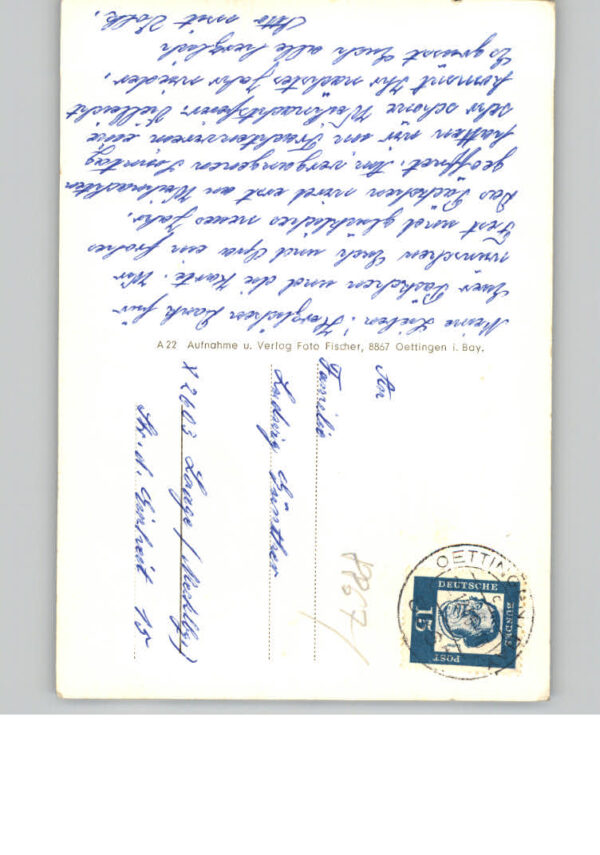 Meine Lieben! Herzlichen Dank für
Euer Päckchen und die Karte. Wir
wünschen Euch und Opa ein frohes
Fest und glückliches neues Jahr.
Das Päckchen wird erst an Weihnachten
geöffnet. Am vergangenen Sonntag
hatten wir im Trachtenverein eine
sehr schöne Weihnachtsfeier. Vielleicht
kommt Ihr nächstes Jahr wieder.
Es grüsst Euch alle herzlich
Otto mit Volk.
A 22 Aufnahme u. Verlag Foto Fischer, 8867 Oettingen i. Bay.
An
Familie
Ludwig Günther
X 2603 Laage / Mecklbg.
Str. d. Einheit 15
8867
OETTINGEN
DEUTSCHE
BUNDES
POST
15